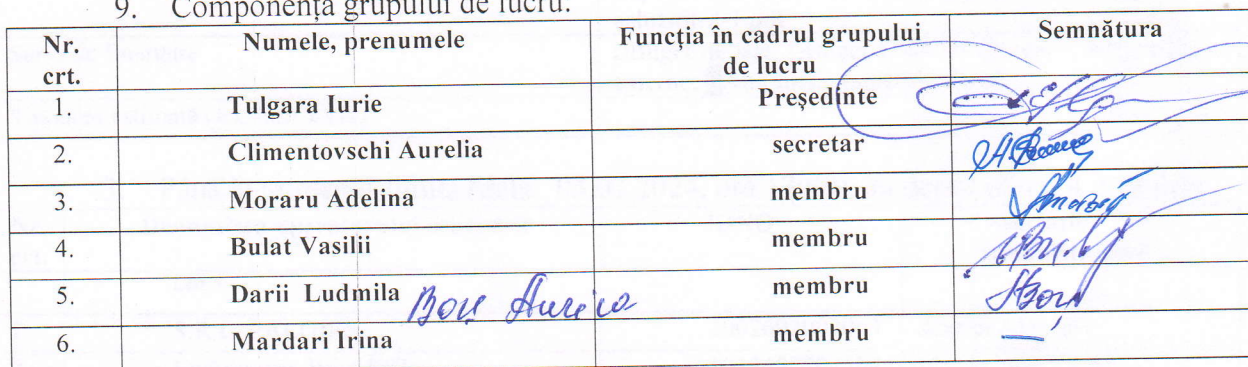 9. Componența grupului de lucru:
Nr. crt. Numele, prenumele Funcția în cadrul grupului de lucru Semnătura
1. Tulgara Iurie Președinte
2. Climentovschi Aurelia secretar
3. Moraru Adelina membru
4. Bulat Vasilii membru
5. Darii Ludmila Aurica membru
6. Mardari Irina membru —